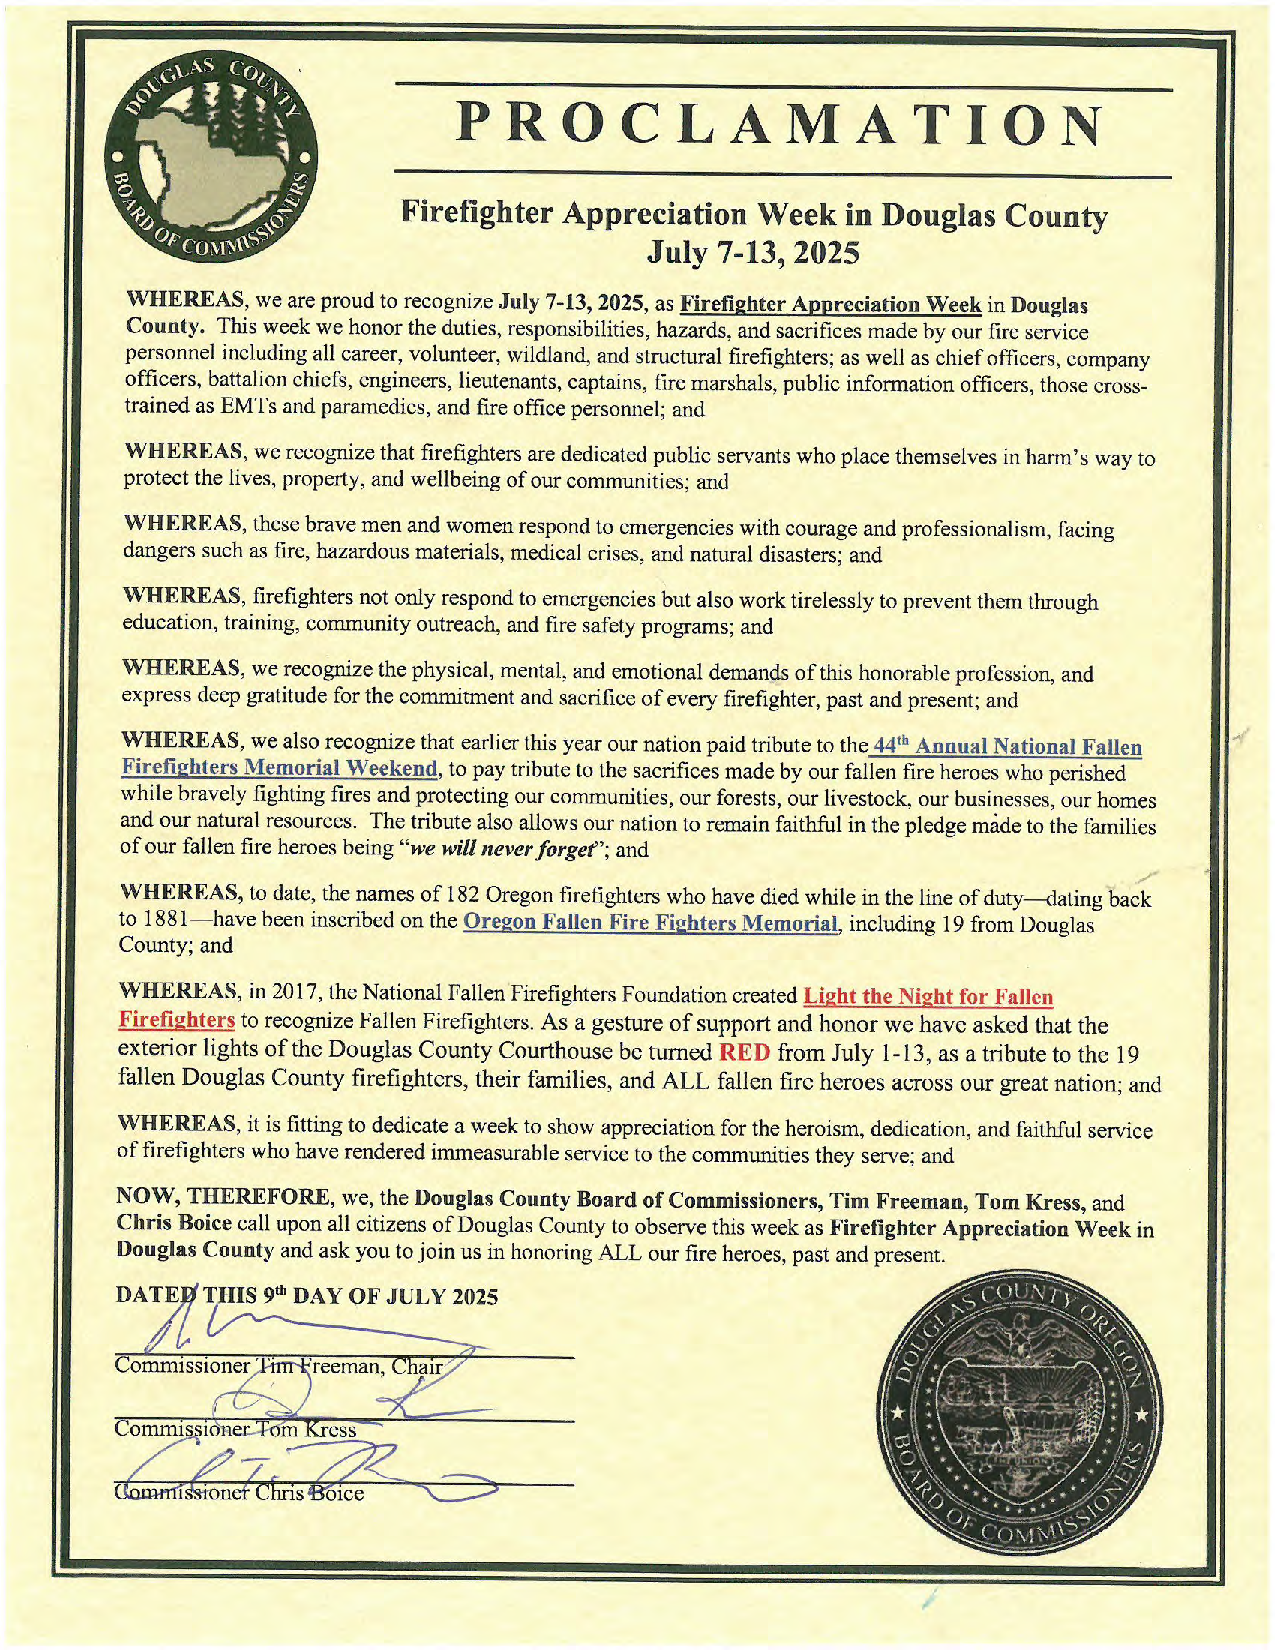 DOUGLAS COUNTY
BOARD OF COMMISSIONERS
PROCLAMATION
Firefighter Appreciation Week in Douglas County
July 7-13, 2025
WHEREAS, we are proud to recognize July 7-13, 2025, as Firefighter Appreciation Week in Douglas
County. This week we honor the duties, responsibilities, hazards, and sacrifices made by our fire service
personnel including all career, volunteer, wildland, and structural firefighters; as well as chief officers, company
officers, battalion chiefs, engineers, lieutenants, captains, fire marshals, public information officers, those cross-
trained as EMTs and paramedics, and fire office personnel; and
WHEREAS, we recognize that firefighters are dedicated public servants who place themselves in harm's way to
protect the lives, property, and wellbeing of our communities; and
WHEREAS, these brave men and women respond to emergencies with courage and professionalism, facing
dangers such as fire, hazardous materials, medical crises, and natural disasters; and
WHEREAS, firefighters not only respond to emergencies but also work tirelessly to prevent them through
education, training, community outreach, and fire safety programs; and
WHEREAS, we recognize the physical, mental, and emotional demands of this honorable profession, and
express deep gratitude for the commitment and sacrifice of every firefighter, past and present; and
WHEREAS, we also recognize that earlier this year our nation paid tribute to the 44th Annual National Fallen
Firefighters Memorial Weekend, to pay tribute to the sacrifices made by our fallen fire heroes who perished
while bravely fighting fires and protecting our communities, our forests, our livestock, our businesses, our homes
and our natural resources. The tribute also allows our nation to remain faithful in the pledge made to the families
of our fallen fire heroes being "we will never forget"; and
WHEREAS, to date, the names of 182 Oregon firefighters who have died while in the line of duty—dating back
to 1881—have been inscribed on the Oregon Fallen Fire Fighters Memorial, including 19 from Douglas
County; and
WHEREAS, in 2017, the National Fallen Firefighters Foundation created Light the Night for Fallen
Firefighters to recognize Fallen Firefighters. As a gesture of support and honor we have asked that the
exterior lights of the Douglas County Courthouse be turned RED from July 1-13, as a tribute to the 19
fallen Douglas County firefighters, their families, and ALL fallen fire heroes across our great nation; and
WHEREAS, it is fitting to dedicate a week to show appreciation for the heroism, dedication, and faithful service
of firefighters who have rendered immeasurable service to the communities they serve; and
NOW, THEREFORE, we, the Douglas County Board of Commissioners, Tim Freeman, Tom Kress, and
Chris Boice call upon all citizens of Douglas County to observe this week as Firefighter Appreciation Week in
Douglas County and ask you to join us in honoring ALL our fire heroes, past and present.
DATED THIS 9th DAY OF JULY 2025
Commissioner Tim Freeman, Chair
Commissioner Tom Kress
Commissioner Chris Boice
DOUGLAS COUNTY OREGON
BOARD OF COMMISSIONERS
THE UNION